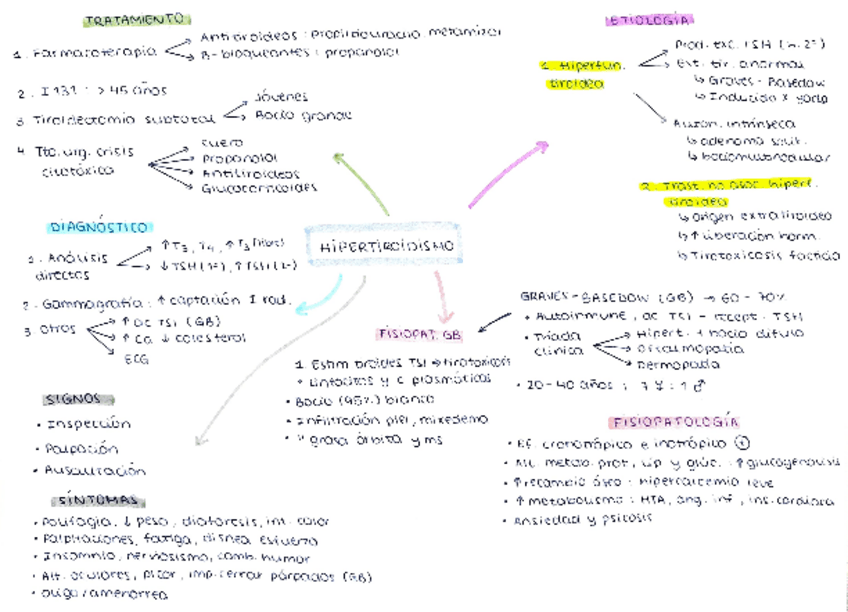 TRATAMIENTO
1. Farmacoterapia
Antitiroideos: Propiltiouracilo metamizol
B-bloqueantes: propanolol
2. I 131: > 45 años
3 Tiroidectomia subtotal
Jóvenes
Bocio grande
4 Tto. urg. crisis
tirotóxica
suero
Propanolol
Antitiroideos
Glucocorticoides
ETIOLOGÍA
1. Hiperfun.
tiroidea
Prod. exc. TSH (h. 2º)
Est. tir. anormal
↳ Graves - Basedow
↳ Inducida x yodo
Auton. intrínseca
↳ adenoma solit.
↳ bociomultinodular
2. Trast. no asoc. hipert.
tiroidea
↳ origen extratiroideo
↳ ↑ liberación horm.
↳ Tirotoxicosis facticia
HIPERTIROIDISMO
DIAGNÓSTICO
1. Análisis
directos
↑ T3, T4, ↑ T3 libres)
↓ TSH (1º), ↑ TSH (2º)
2. Gammagrafía: ↑ captación I rad.
3 otros
↑ ac TSI (GB)
↑ Ca ↓ colesterol
ECG
SIGNOS
• Inspección
• Palpación
• Auscultación
SÍNTOMAS
• Polifagia, ↓ peso, diaforesis, int. calor
• Palpitaciones, fatiga, disnea esfuerzo
• Insomnio, nerviosismo, camb. humor
• Alt. oculares, picor, imp. cerrar párpados (GB)
• oligo/amenorrea
FISIOPAT. GB
1 Estim tiroides TSI → tirotoxicosis
• Linfocitos y c plasmáticas
• Bocio (95%) blanco
• Infiltración piel, mixedema
• " grasa órbita y ms
GRAVES - BASEDOW (GB) → 60 - 70%
• Autoinmune, ac TSI - recept. TSH
• Tríada
clínica
Hipert. + bocio difuso
Oftalmopatía
Dermopatía
• 20-40 años: 7 ♀: 1 ♂
FISIOPATOLOGÍA
• Ef. cronotrópico e inotrópico ⊕
• Alt. metab. prot, líp y glúc. ↑ glucogénesis
• ↑ recambio óseo: hipercalcemia leve
• ↑ metabolismo: HTA, ang. inf, ins. cardíaca
• Ansiedad y psicosis